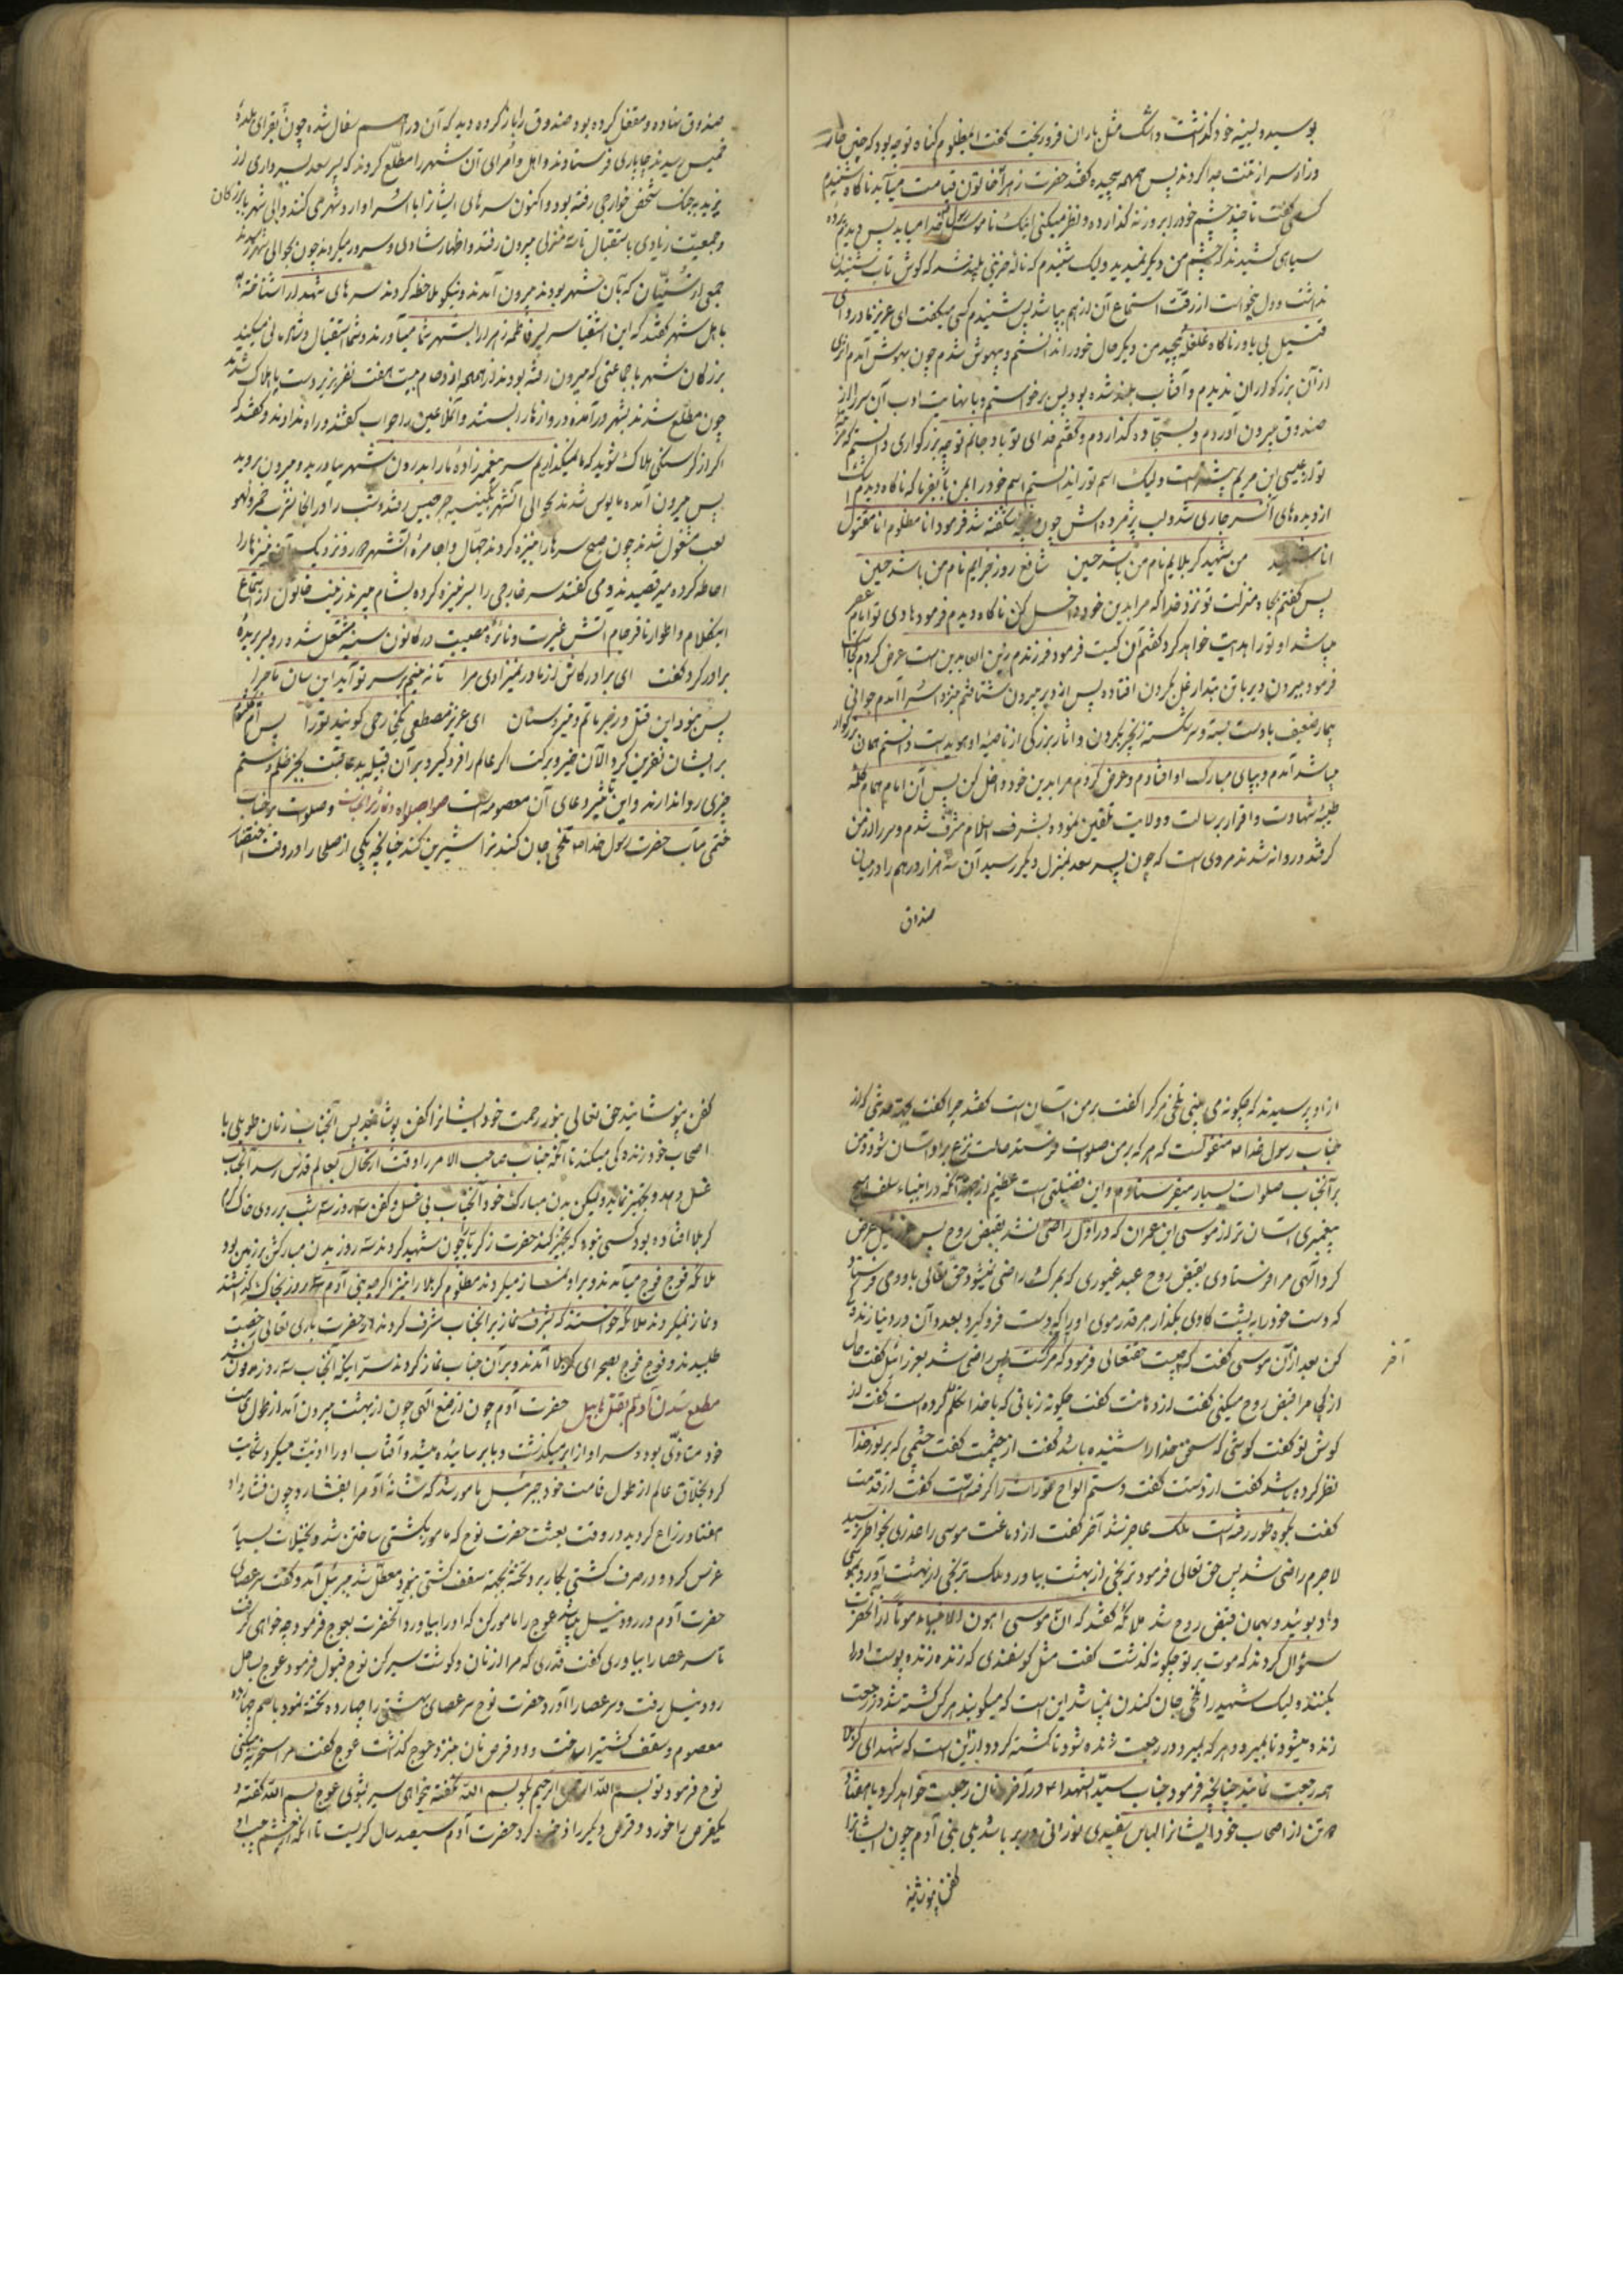 بوسید و بسینه خود گذاشت و اشک مثل باران فرو ریخت گفت ای مظلوم گناه تو چه بود که چنین جار
و زار سر از تنت جدا کردند پس همهمه پیچیده گفتند حضرت زهرا خاتون قیامت میآید ناگاه شنیدم
کسی گفت نابند چشم خود را بر وزنه گذارده و نظر میکنی اینک ناموس رسول خدا میاید پس دیدم پرده
سیاهی کشیدند که چشم من دیگر نمیدید ولیک شنیدم که ناله حزینی بلند شد که گوش تاب شنیدن
نداشت و دل میخواست از رقت استماع آن از هم بپاشد پس شنیدم کسی میگفت ای عزیز مادر و ای
قتیل بی یاور ناگاه غلغله پیچید من دیگر حال خود را ندانستم و بیهوش شدم چون بهوش آمدم اثری
از آن بزرگواران ندیدم و آفتاب بلند شده بود پس برخواستم و با نهایت ادب آن سر را از
صندوق بیرون آوردم و بسجاده گذاردم و گفتم فدای تو باد جانم تو چه بزرگواری دانستم که مرتبه
تو از عیسی بن مریم بیشتر است ولیک اسم تو را ندانستم اسم خود را بمن بفرما که ناگاه دیدم اشک
از دیده های آن سر جاری شد و لب پژمرده اش چون غنچه شکفته شد فرمود انا مظلوم انا مقتول
انا شهید من شهید کربلایم نام من باشد حسین شافع روز جزایم نام من باشد حسین
پس گفتم بجاه و منزلت تو نزد خدا که مرا بدین خود داخل کن ناگاه دیدم فرمود هادی تو امام عصر
میباشد او تو را هدایت خواهد کرد گفتم آن کیست فرمود فرزندم زین العابدین است عرض کردم کجاست
فرمود بیرون دیر با تن تبدار غل بگردن افتاده پس از دیر بیرون شتافتم بنزد اسرا آمدم جوانی
بیمار ضعیف با دست بسته و سر شکسته زنجیر بگردن و آثار بزرگی از ناصیه او هویداست دانستم همان بزرگوار
میباشد آمدم و بپای مبارک او افتادم و عرض کردم مرا بدین خود داخل کن پس آن امام همام کلمه
طیبه شهادت و اقرار برسالت و ولایت تلقین نموده بشرف اسلام مشرف شدم و سر را از من
گرفتند و روانه شدند مروی است که چون پسر سعد بمنزل دیگر رسید آن سه هزار درهم را در میان
صندوق
صندوق نهاده و مقفل کرده بود صندوق را باز کرده دید که آن دراهم سفال شده چون بقرای بلده
خمیس رسیدند چاپاری فرستادند و اهل و امرای آن شهر را مطلع کردند که پسر سعد بسرداری از
یزید بجنگ شخص خوارجی رفته بود و اکنون سرهای ایشانرا با اسرا وارد شهر می کنند والی شهر با بزرگان
و جمعیت زیادی باستقبال تا سه منزلی بیرون رفتند و اظهار شادی و سرور میکردند چون بحوالی شهر
جمعی از شیعیان که بآن شهر بودند بیرون آمدند و نیکو ملاحظه کردند سرهای شهدا را شناختند
باهل شهر گفتند که این اشقیا سر پسر فاطمه زهرا را بشهر شما میآورند و شما استقبال و شادمانی میکنید
بزرگان شهر با جماعتی که بیرون رفته بودند از همهمه ازدحام بیست هفت نفر بزیر دست و پا هلاک شدند
چون مطلع شدند بشهر در آمده دروازه ها را بستند و آن ملاعین را جواب گفتند و راه ندادند و گفتند که
اگر از گرسنگی هلاک شوید که ما نمیگذاریم سر پیغمبر زاده ما را بدرون شهر بیاورید و بیرون بروید
پس بیرون آمده مایوس شدند بحوالی آنشهر بکنیسه جرجیس رفتند و شب را در آنجا بشرب خمر و لهو
لعب مشغول شدند چون صبح سرها را بنیزه کردند جهال و اجامره آنشهر در نزدیک آن نیزها را
احاطه کرده میرقصیدند و می گفتند سر خارجی را بسر نیزه کرده بشام میبرند زینب خاتون از استماع
اینکلام و اطوار نافرجام آتش غیرت و نائره مصیبت در کانون سینه مشتعل شده رو بسر بریده
برادر کرد گفت ای برادر کاش از مادر نمیزادی مرا تا نه بینم بر سر تو آید این سان ماجرا
پس نبود این قتل و زجر ماتم و قید و ستان ای عزیز مصطفی یکی رحمی گویند تو را پس ام کلثوم
بر ایشان نفرین کرد الآن خیر و برکت اگر عالم را فرو گیرد بر آن قبیله بد عاقبت بجز ظلم و ستم
چیزی روا ندارند و این تأثیر دعای آن معصومه است و صلوات بر جناب
ختمی مآب حضرت رسول خدا تلخی جان کندنرا شیرین کند چنانچه یکی از صلحا را در وقت احتضار
از او پرسیدند که چگونه می بینی تلخی مرگ را گفت بر من آسان است گفتند چرا گفت بجهة حدیثی که از
جناب رسول خدا منقولست که هر که بر من صلوات فرستد حالت نزع بر او آسان شود و من
بر آنجناب صلوات بسیار میفرستادم و این فضیلتی است عظیم از جهة آنکه در انبیاء سلف هیچ
پیغمبری آسان تر از موسی ابن عمران که در اول راضی نشد بقبض روح پس عزرائیل عرض
کرد الهی مرا فرستادی بقبض روح عبد غیوری که بمرگ راضی نمیشود حق تعالی باو وحی فرستاد
که دست خود را به پشت گاوی بگذار هر قدر موی او را که دست فرو گیرد بعدد آن در دنیا زندگی
کن بعد از آن موسی گفت که چیست حقتعالی فرمود که مرگست پس راضی شد بعزرائیل گفت حال
آخر
از کجا مرا قبض روح میکنی گفت از دهانت گفت چگونه زبانی که با خدا تکلم کرده است گفت از
گوش تو گفت گوشی که سخن خدا را شنیده باشد گفت از چشمت گفت چشمی که بر نور خدا
نظر کرده باشد گفت از دستت گفت دستم الواح تورات را گرفته است گفت از قدمت
گفت بکوه طور رفته است ملک عاجز شد آخر گفت از دماغت موسی را عذری بخواطر نرسید
لاجرم راضی شد پس حق تعالی فرمود ترنجی از بهشت بیاورد ملک ترنجی از بهشت آورد بموسی
داد بوئید و بهمان قبض روح شد ملائکه گفتند که ان موسی اهون الانبیاء موتا از آنحضرت
سؤال کردند که موت بر تو چگونه گذشت گفت مثل گوسفندی که زنده زنده پوست او را
بکنند ولیک شهید را تلخی جان کندن نمیباشد این است که میگویند هر کس کشته شد در رجعت
زنده میشود تا بمیرد و هر که بمیرد در رجعت زنده شود تا کشته گردد از این است که شهدای کربلا
همه رجعت نمایند چنانچه فرمود جناب سید الشهدا در آخر زمان رجعت خواهد کرد با هفتاد
دو تن از اصحاب خود ایشانرا لباس سفیدی نورانی در بر باشد بلی بنی آدم چون ایشانرا
کفن پوشانید
کفن پوشانید حق تعالی بنور رحمت خود ایشانرا کفن پوشانید پس آنجناب زمان طویلی با
اصحاب خود زندگی میکند تا آنکه جناب صاحب الامر را وقت ارتحال بعالم قدس رسد آنجناب
غسل دهد و تجهیز نماید ولیکن بدن مبارک خود آنجناب بی غسل و کفن سه روز سه شب بر روی خاک گرم
کربلا افتاده بود کسی نبود که تجهیز کند حضرت زکریا چون شهید کردند سه روز بدن مبارکش بر زمین بود
ملائکه فوج فوج میآمدند و بر او نماز میکردند مظلوم کربلا را نیز اگر چه بنی آدم سه روز بخاک گذاشتند
و نماز نمیکردند ملائکه خواستند که بشرف نماز بر آنجناب مشرف گردند از حضرت باری تعالی رخصت
طلبیدند و فوج فوج بصحرای کربلا آمدند و بر آن جناب نماز کردند سر اینکه آنجناب سه روز مدفون نشد
مطلع شدن آدم بقتل هابیل حضرت آدم چون از صنع الهی چون از بهشت بیرون آمد از طول قامت
خود متأذی بود و سر او از ابر میگذشت و با بر سائیده میشد و آفتاب او را اذیت میکرد شکایت
کرد بخلاق عالم از طول قامت خود جبرئیل مامور شد که شانه آدم را بفشارد چون فشار داد
هفتاد زراع گردید در وقت بعثت حضرت نوح که مامور بکشتی ساختن شد و نخیلات بسیار
غرس کرد و در صرف کشتی بکار برد تخته بجهة سقف کشتی نبود معطل شد جبرئیل آمد و گفت سر عصای
حضرت آدم در رود نیل میباشد عوج را مامور کن که او را بیاورد آنحضرت بعوج فرمود چه خواهی گرفت
تا سر عصا را بیاوری گفت قدری که مرا از نان و گوشت سیر کن نوح قبول فرمود عوج بساحل
رود نیل رفت و سر عصا را آورد حضرت نوح سر عصای بهشتی را چهارده تخته نمود باسم چهارده
معصوم و سقف کشتیرا ساخت و دو قرص نان بنزد عوج گذاشت عوج گفت مرا سخریه میکنی
نوح فرمود تو بسم الله الرحمن الرحیم بگو بسم الله نگفته میخوای سیر بشوی عوج بسم الله گفته و
یکقرص را خورد و قرص دیگر را ذخیره کرد حضرت آدم سیصد سال گریست تا آنکه چشم